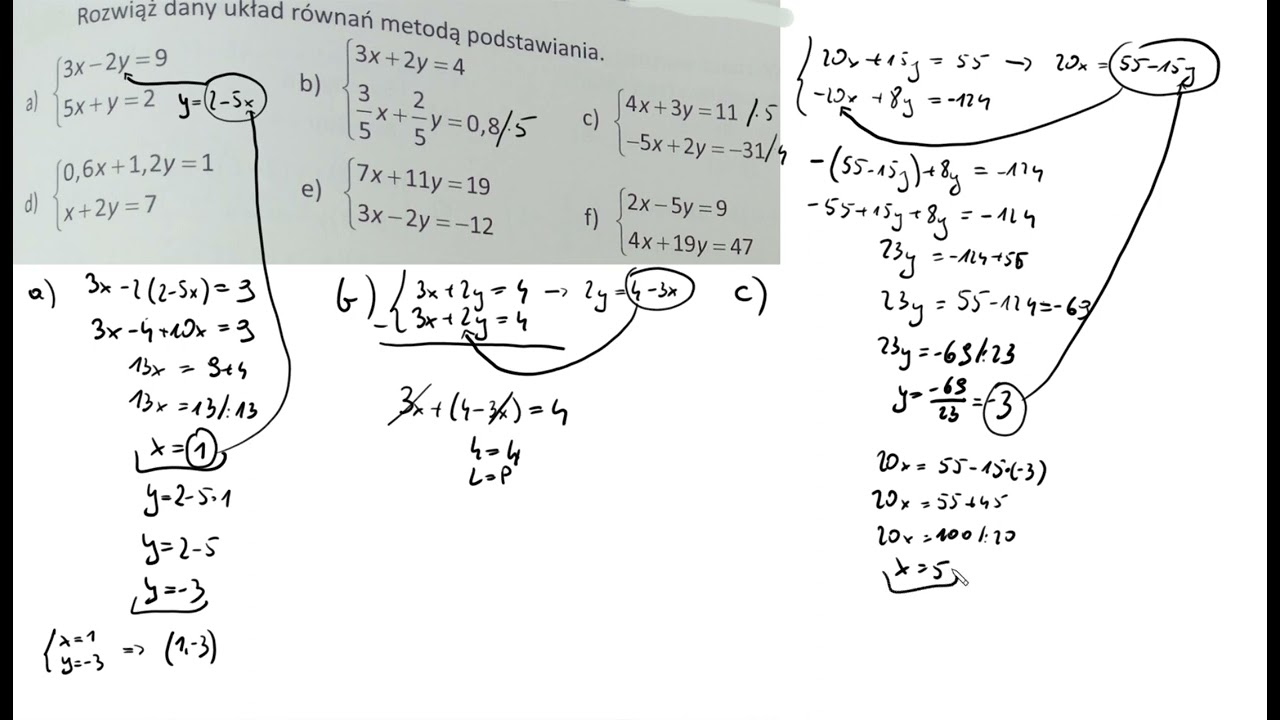 Rozwiąż dany układ równań metodą podstawiania.
a) 3x-2y=9
5x+y=2 y=2-5x
b) 3x+2y=4
3/5x+2/5y=0,8/·5
c) 4x+3y=11 /·5
-5x+2y=-31/4
d) 0,6x+1,2y=1
x+2y=7
e) 7x+11y=19
3x-2y=-12
f) 2x-5y=9
4x+19y=47
a) 3x-2(2-5x)=9
3x-4+10x=9
13x=9+4
13x=13/:13
x=1
y=2-5·1
y=2-5
y=-3
x=1
y=-3 => (1,-3)
b) 3x+2y=4 → 2y=4-3x
- 3x+2y=4
3x+(4-3x)=4
4=4
L=P
c)
20x+15y=55 → 20x=55-15y
-20x+8y=-124
-(55-15y)+8y=-124
-55+15y+8y=-124
23y=-124+55
23y=55-124=-69
23y=-69/:23
y=-69/23=-3
20x=55-15·(-3)
20x=55+45
20x=100/:20
x=5